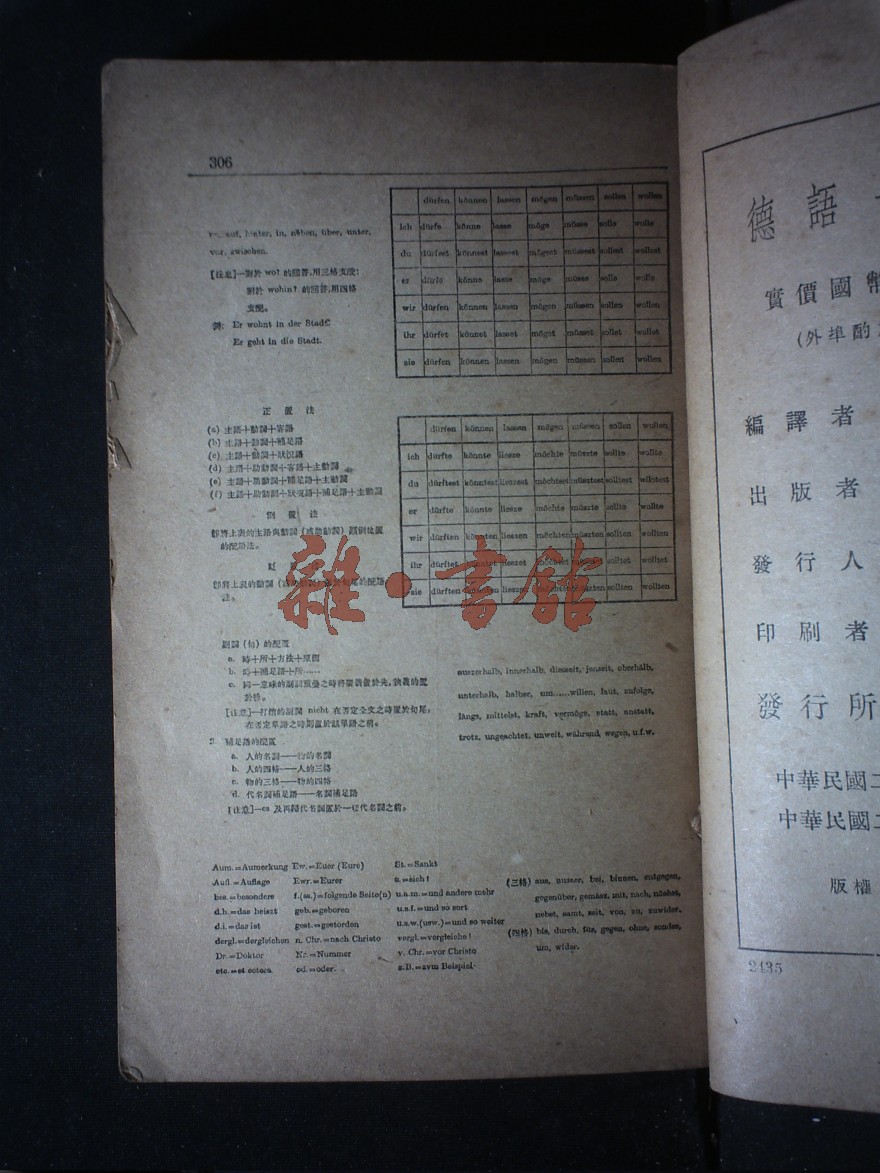 306
auf, hinter, in, neben, über, unter,
vor, zwischen.
[注意]—對於 wo? 的回答,用三格支配:
對於 wohin? 的回答,用四格
支配。
例: Er wohnt in der Stadt.
Er geht in die Stadt.
dürfen können lassen mögen müssen sollen wollen
ich dürfe könne lasse möge müsse solle wolle
du dürfest könnest lassest mögest müssest sollest wollest
er dürfe könne lasse möge müsse solle wolle
wir dürfen können lassen mögen müssen sollen wollen
ihr dürfet könnet lasset möget müsset sollet wollet
sie dürfen können lassen mögen müssen sollen wollen
正置法
(a) 主語+動詞+客語
(b) 主語+動詞+補足語
(c) 主語+動詞+狀況語
(d) 主語+助動詞+客語+主動詞
(e) 主語+助動詞+補足語+主動詞
(f) 主語+助動詞+狀況語+補足語+主動詞
倒置法
卽將上表的主語與動詞(或助動詞)顚倒位置
的配語法。
卽將上表的動詞
法。
dürfen können lassen mögen müssen sollen wollen
ich dürfte könnte liesze möchte müszte sollte wollte
du dürftest könntest lieszest möchtest müsztest solltest wolltest
er dürfte könnte liesze möchte müszte sollte wollte
wir dürften könnten lieszen möchten müszten sollten wollten
ihr dürftet lieszet solltet wolltet
sie dürften lieszen sollten wollten
雜·書館
副詞(句)的配置
a. 時+所+方法+原因
b. 時+補足語+所……
c. 同一意味的副詞重疊之時將廣義置於先,狹義的置
於後。
[注意]—打消的副詞 nicht 在否定全文之時置於句尾,
在否定單語之時則置於該單語之前。
2. 補足語的配置
a. 人的名詞——物的名詞
b. 人的四格——人的三格
c. 物的三格——物的四格
d. 代名詞補足語——名詞補足語
[注意]—es 及再歸代名詞置於一切代名詞之前。
auszerhalb, innerhalb, diesseit, jenseit, oberhalb,
unterhalb, halber, um……willen, laut, zufolge,
längs, mittelst, kraft, vermöge, statt, anstatt,
trotz, ungeachtet, unweit, während, wegen, u.f.w.
Aum.=Aumerkung Ew.=Euer (Eure) St.=Sankt
Aufl.=Auflage Ewr.=Eurer s.=sich!
bes.=besonders f.(ss.)=folgende Seite(n) u.a.m.=und andere mehr
d.h.=das heiszt geb.=geboren u.s.f.=und so sort
d.i.=das ist gest.=gestorden u.s.w.(usw.)=und so weiter
dergl.=dergleichen n. Chr.=nach Christo vergl.=vergleiche!
Dr.=Doktor Nr.=Nummer v. Chr.=vor Christo
etc.=et cetera od.=oder. z.B.=zum Beispiel
(三格) aus, auszer, bei, binnen, entgegen,
gegenüber, gemäsz, mit, nach, nächst,
nebst, samt, seit, von, zu, zuwider.
(四格) bis, durch, für, gegen, ohne, sonder,
um, wider.
德語
實價國幣
(外埠酌
編譯者
出版者
發行人
印刷者
發行所
中華民國二
中華民國二
版權
2435